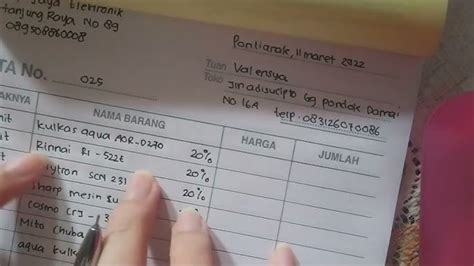 Jaya Elektronik
Tanjung Raya No 89
089508860008
Pontianak, 11 maret 2022
Tuan Valensya
Toko Jln adisucipto Gg pondok Damai
No 16A telp. 083126070086
TA No. 025
AKNYA NAMA BARANG HARGA JUMLAH
kulkas aqua AQR-D270 20%
Rinnai RI-522E 20%
SCN 231 20%
sharp mesin
cosmo CRJ-
Mito Chuba
aqua kulk